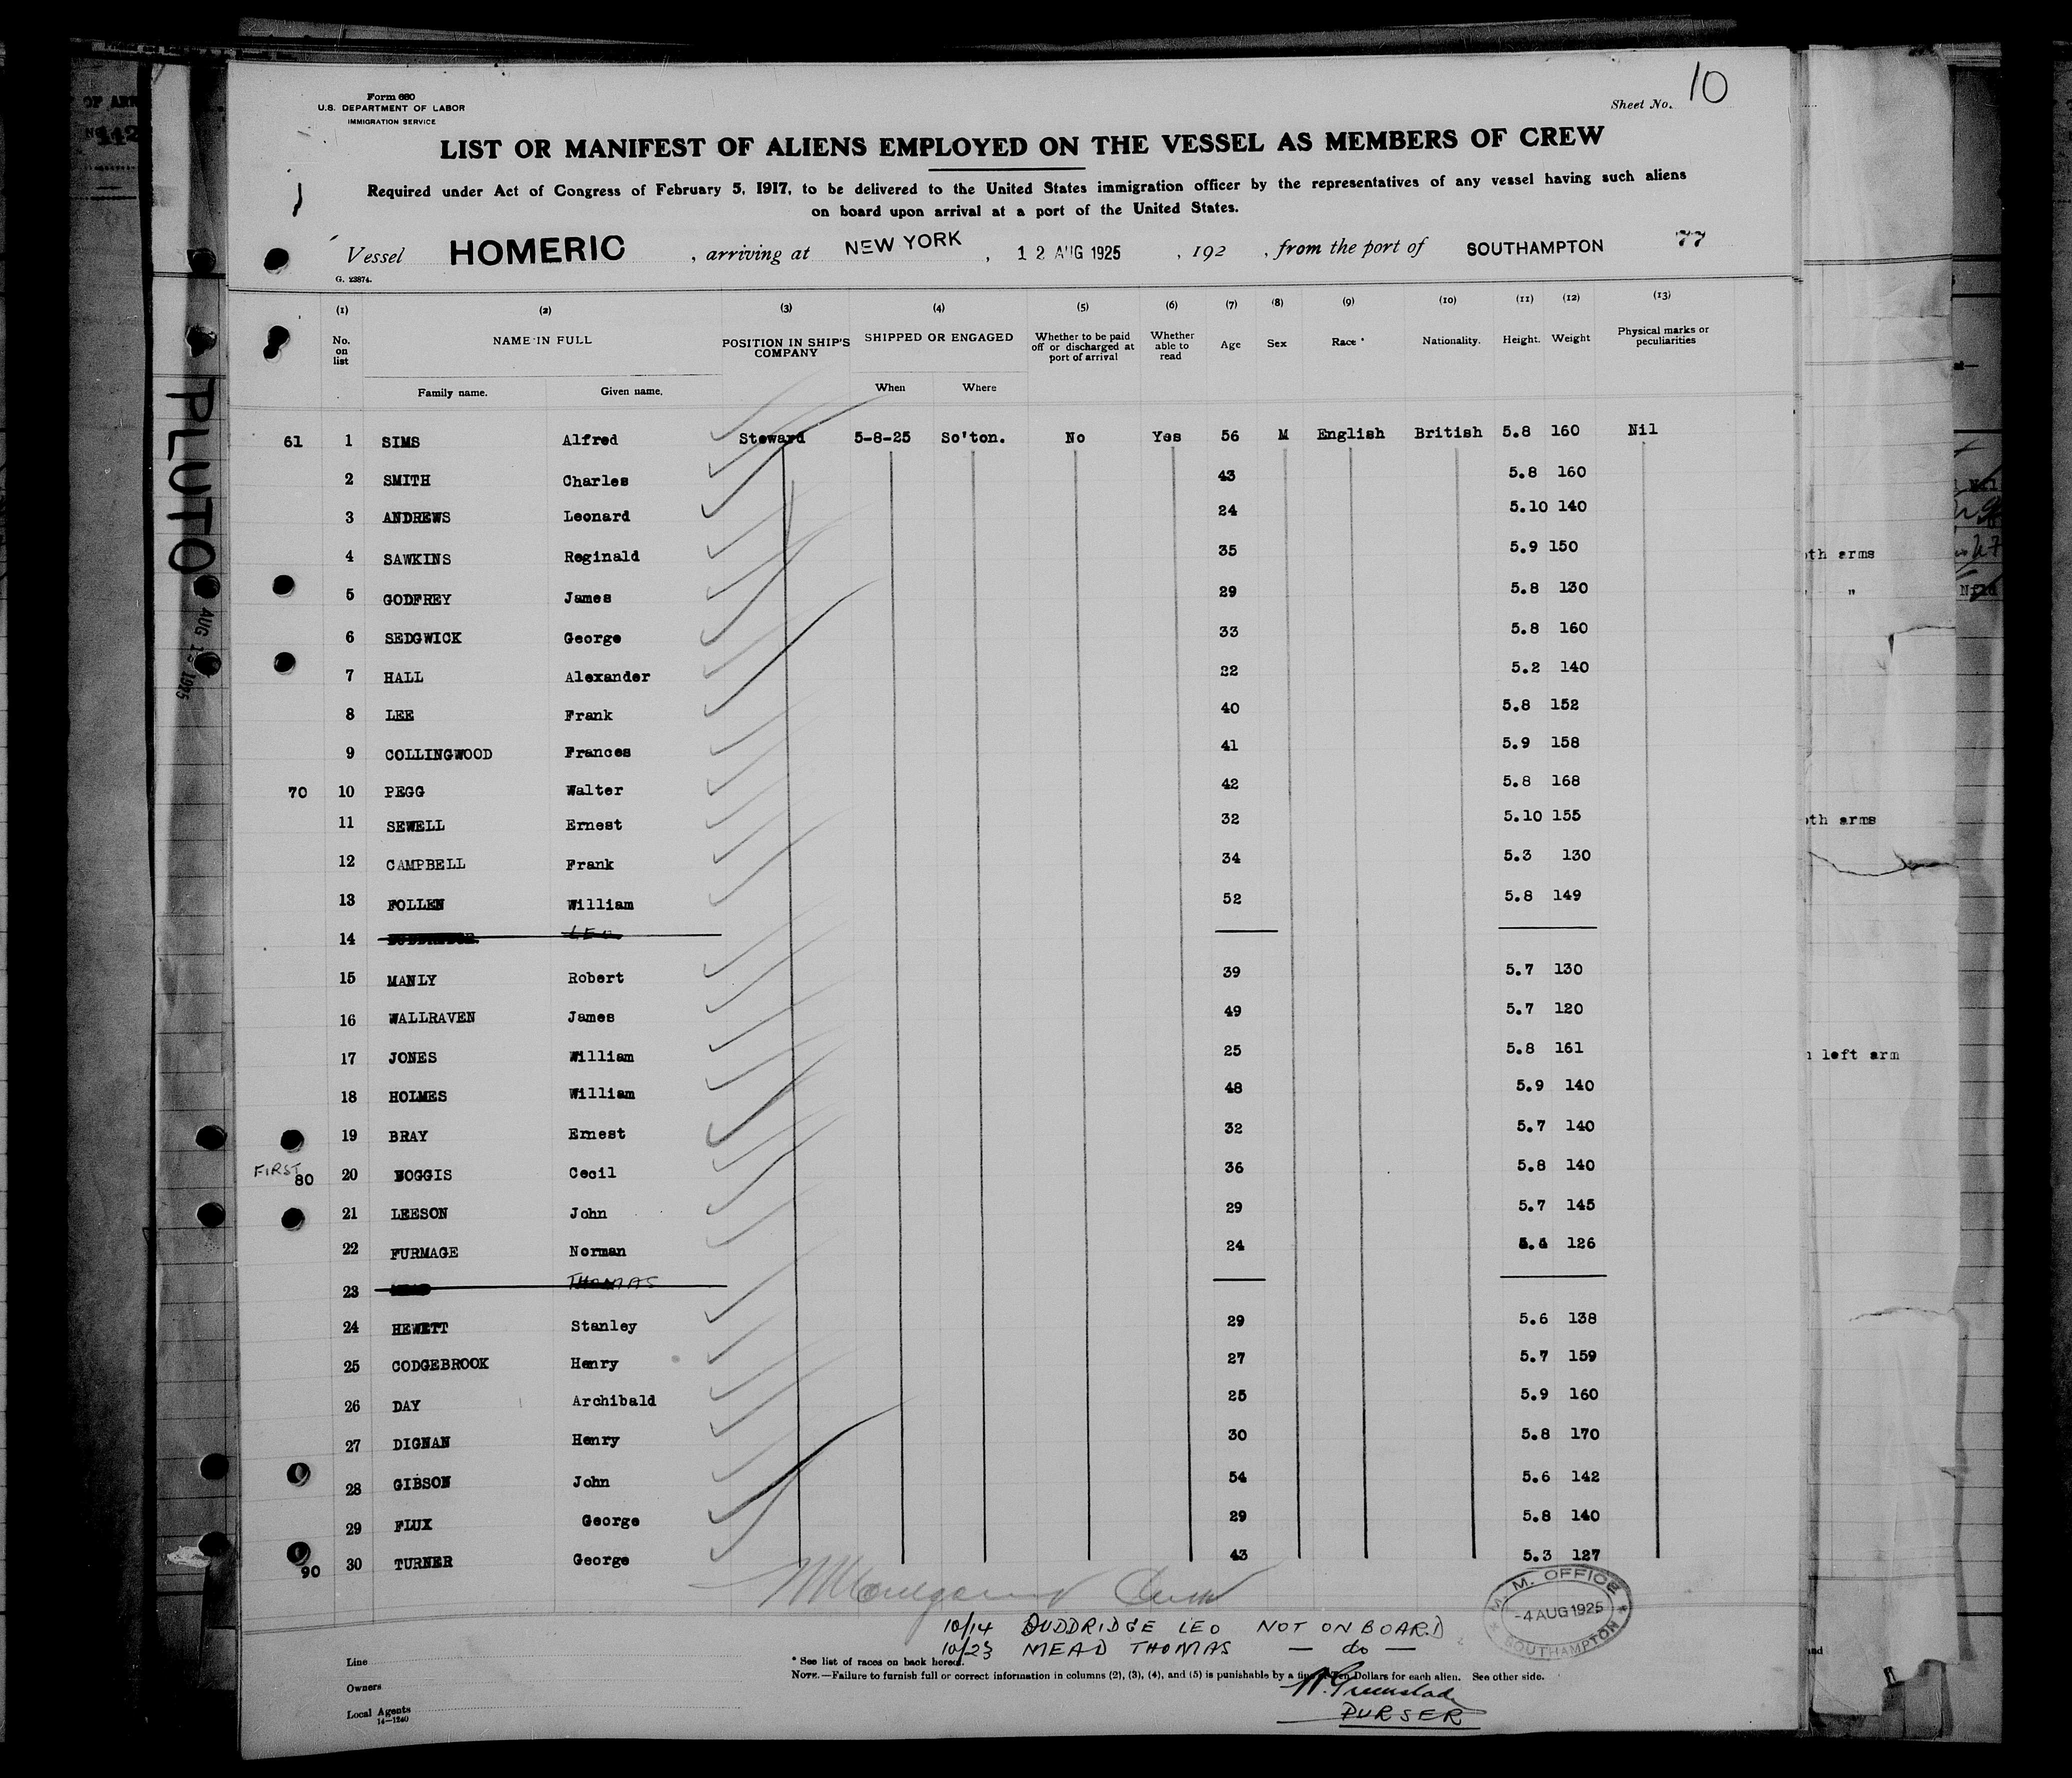 Form 680
U.S. DEPARTMENT OF LABOR
IMMIGRATION SERVICE
Sheet No. 10
LIST OR MANIFEST OF ALIENS EMPLOYED ON THE VESSEL AS MEMBERS OF CREW
Required under Act of Congress of February 5, 1917, to be delivered to the United States immigration officer by the representatives of any vessel having such aliens
on board upon arrival at a port of the United States.
Vessel HOMERIC , arriving at NEW YORK , 12 AUG 1925 , 192 , from the port of SOUTHAMPTON 77
G. 23874.
(1) (2) (3) (4) (5) (6) (7) (8) (9) (10) (11) (12) (13)
No. on list NAME IN FULL POSITION IN SHIP'S COMPANY SHIPPED OR ENGAGED Whether to be paid off or discharged at port of arrival Whether able to read Age Sex Race * Nationality. Height. Weight Physical marks or peculiarities
Family name. Given name. When Where
61 1 SIMS Alfred Steward 5-8-25 So'ton. No Yes 56 M English British 5.8 160 Nil
2 SMITH Charles 43 5.8 160
3 ANDREWS Leonard 24 5.10 140
4 SAWKINS Reginald 35 5.9 150
5 GODFREY James 29 5.8 130
6 SEDGWICK George 33 5.8 160
7 HALL Alexander 22 5.2 140
8 LEE Frank 40 5.8 152
9 COLLINGWOOD Frances 41 5.9 158
70 10 PEGG Walter 42 5.8 168
11 SEWELL Ernest 32 5.10 155
12 CAMPBELL Frank 34 5.3 130
13 FOLLEN William 52 5.8 149
14 LEO
15 MANLY Robert 39 5.7 130
16 WALLRAVEN James 49 5.7 120
17 JONES William 25 5.8 161
18 HOLMES William 48 5.9 140
19 BRAY Ernest 32 5.7 140
FIRST 80 20 BOGGIS Cecil 36 5.8 140
21 LEESON John 29 5.7 145
22 FURMAGE Norman 24 126
23 MEAD THOMAS
24 HEWETT Stanley 29 5.6 138
25 CODGEBROOK Henry 27 5.7 159
26 DAY Archibald 25 5.9 160
27 DIGNAN Henry 30 5.8 170
28 GIBSON John 54 5.6 142
29 FLUX George 29 5.8 140
90 30 TURNER George 43 5.3 127
M.M. OFFICE
-4 AUG 1925
SOUTHAMPTON
10/14 DUDDRIDGE LEO NOT ON BOARD
10/23 MEAD THOMAS — do —
Line
Owners
Local Agents
14—1240
* See list of races on back hereof.
NOTE.—Failure to furnish full or correct information in columns (2), (3), (4), and (5) is punishable by a fine of Ten Dollars for each alien. See other side.
PURSER
PLUTO
AUG 1925
oth arms
"
oth arms
n left arm